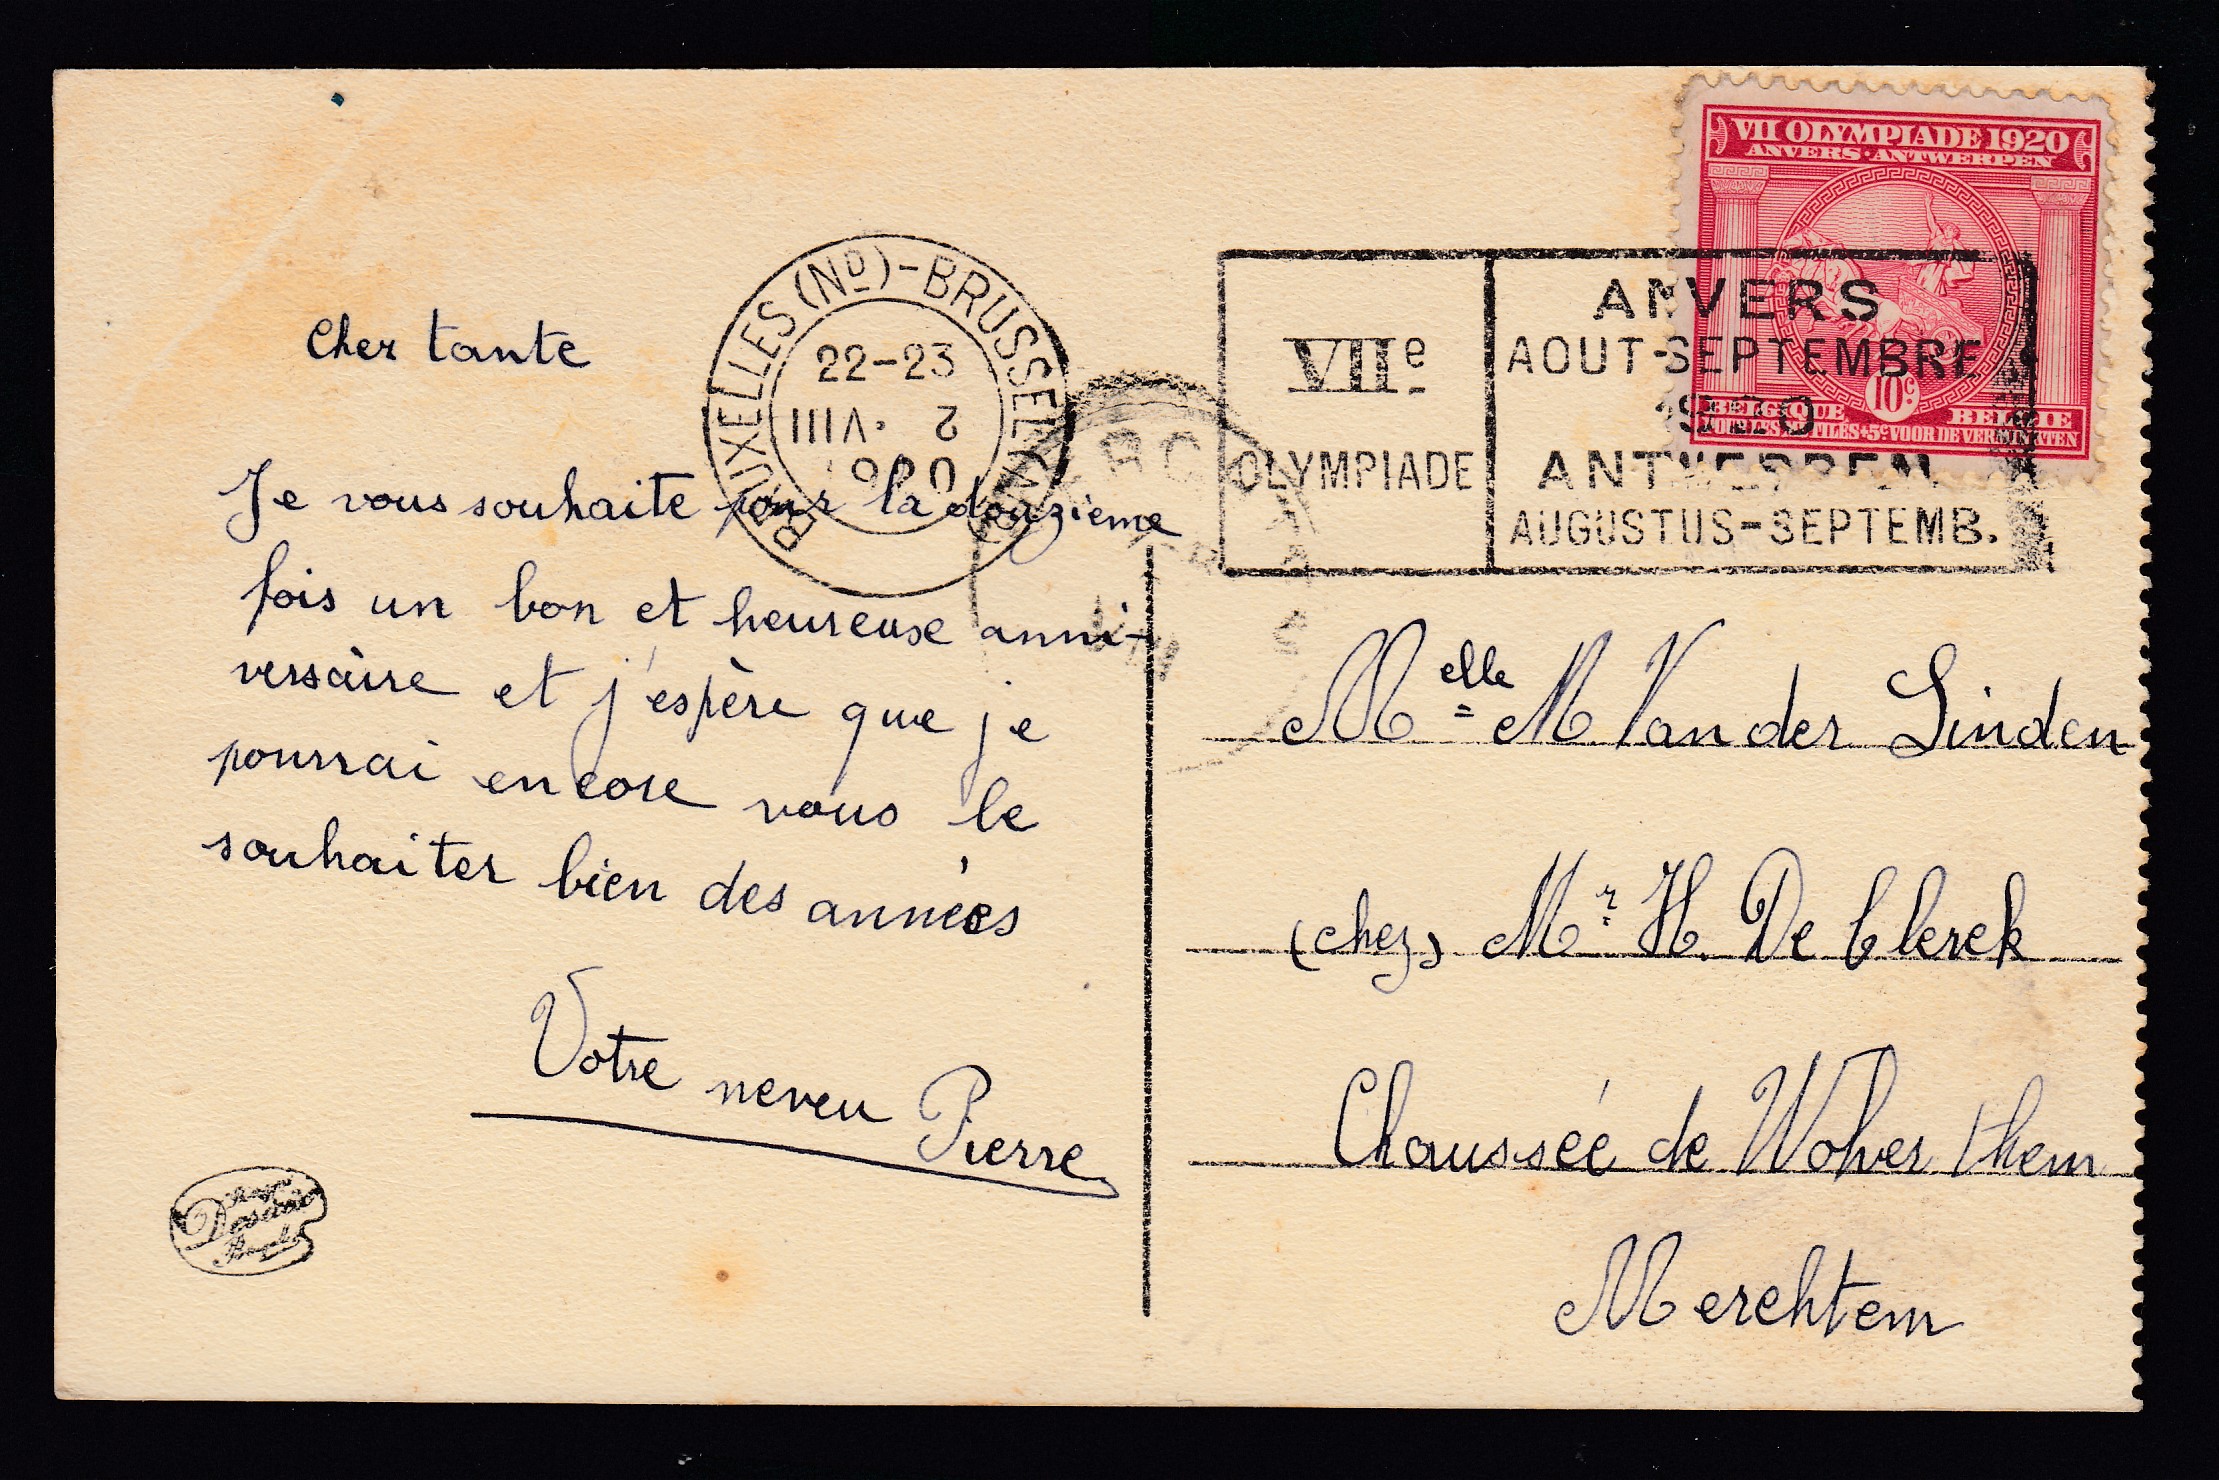 VII OLYMPIADE 1920
ANVERS·ANTWERPEN
10c
BELGIQUE BELGIE
+5c VOOR DE
BRUXELLES (Nd)-BRUSSEL
22-23
2 ·VIII
VIIe
OLYMPIADE
ANVERS
AOUT-SEPTEMBRE
1920
ANTWERPEN
AUGUSTUS-SEPTEMB.
Cher tante
Je vous souhaite pour la douzième
fois un bon et heureuse anni-
versaire et j'espère que je
pourrai encore vous le
souhaiter bien des années
Votre neveu Pierre
Melle M. Van der Linden
(chez) Mr. H. De Clerck
Chaussée de Wolverthem
Merchtem